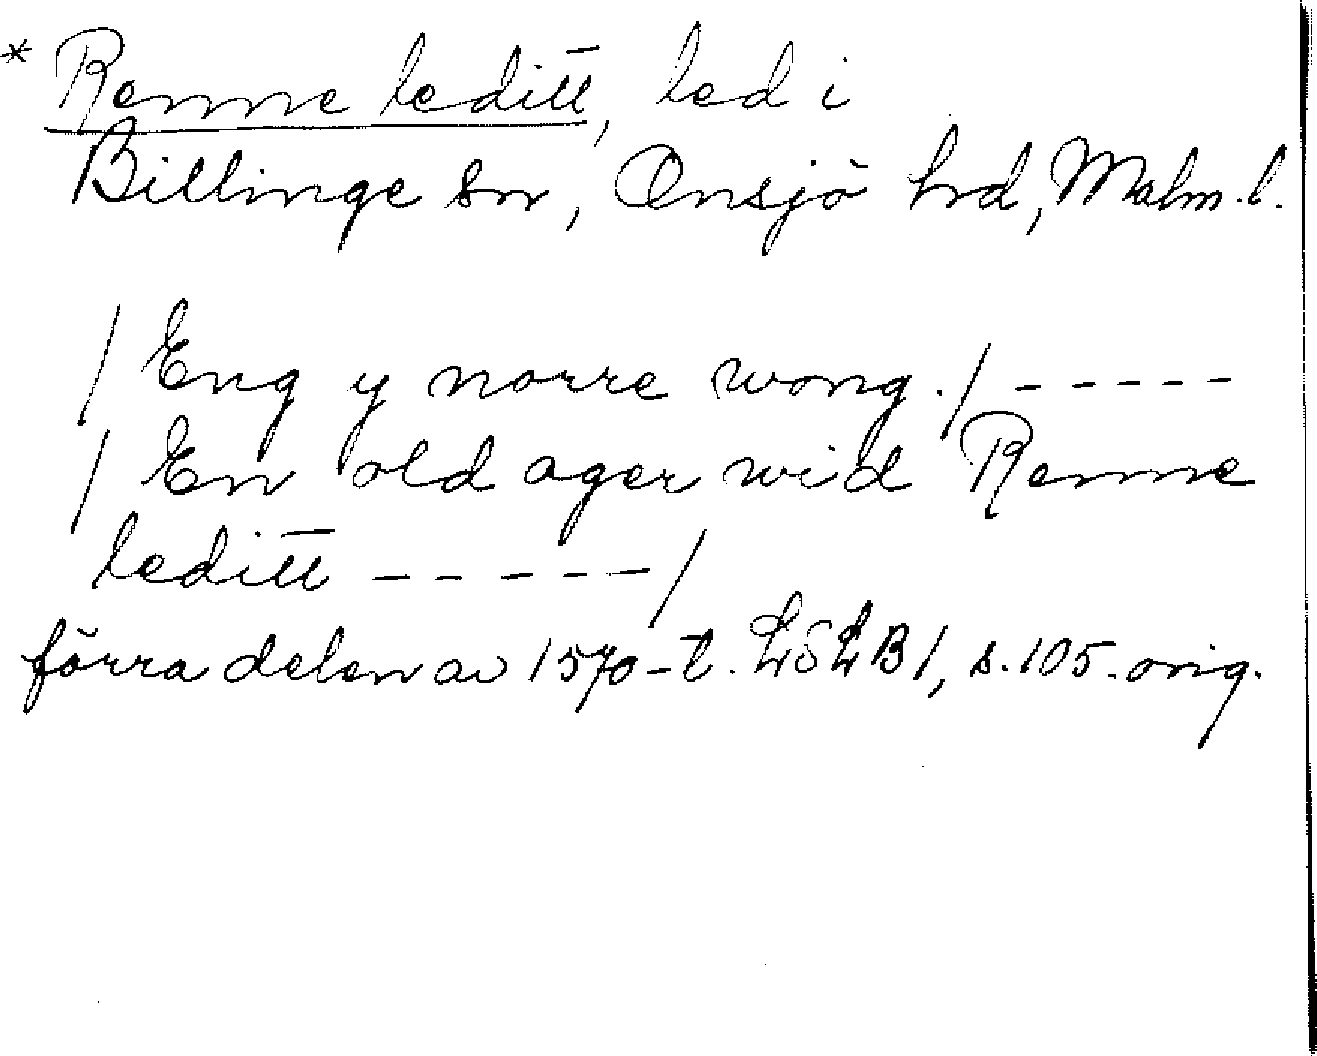 * Renne leditt, led i
Billinge sn, Onsjö hrd, Malm. l.
/ Eng y norre wong. / - - - - -
/ En old ager wid Renne
leditt - - - - - /
förra delen av 1570-t. LSLB 1, s. 105. orig.